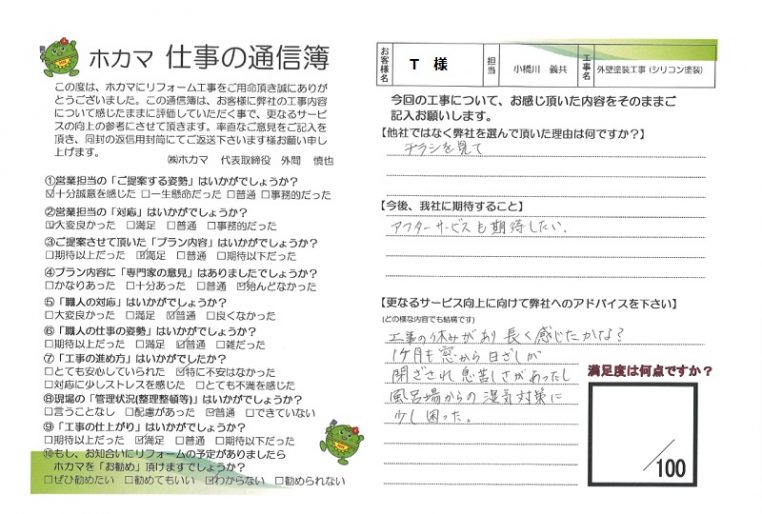 ホカマ 仕事の通信簿
この度は、ホカマにリフォーム工事をご用命頂き誠にありが
とうございました。この通信簿は、お客様に弊社の工事内容
について感じたままに評価していただく事で、更なるサービ
スの向上の参考にさせて頂きます。率直なご意見をご記入を
頂き、同封の返信用封筒にてご返送下さいます様お願い申し
上げます。
㈱ホカマ 代表取締役 外間 慎也
①営業担当の「ご提案する姿勢」はいかがでしょうか?
☑十分誠意を感じた □一生懸命だった □普通 □事務的だった
②営業担当の「対応」はいかがでしょうか?
☑大変良かった □満足 □普通 □事務的だった
③ご提案させて頂いた「プラン内容」はいかがでしょうか?
□期待以上だった ☑満足 □普通 □期待以下だった
④プラン内容に「専門家の意見」はありましたでしょうか?
□かなりあった □十分あった □普通 ☑殆んどなかった
⑤「職人の対応」はいかがでしょうか?
□大変良かった □満足 ☑普通 □良くなかった
⑥「職人の仕事の姿勢」はいかがでしょうか?
□期待以上だった □満足 ☑普通 □雑だった
⑦「工事の進め方」はいかがでしたか?
□とても安心していられた ☑特に不安はなかった
□対応に少しストレスを感じた □とても不満を感じた
⑧現場の「管理状況(整理整頓等)」はいかがでしょうか?
□言うことなし □配慮があった ☑普通 □できていない
⑨「工事の仕上がり」はいかがでしょうか?
□期待以上だった ☑満足 □普通 □期待以下だった
⑩もし、お知合いにリフォームの予定がありましたら
ホカマを「お勧め」頂けますでしょうか?
□ぜひ勧めたい □勧めてもいい ☑わからない □勧められない
お客様名 T 様 担当 小橋川 義共 工事名 外壁塗装工事(シリコン塗装)
今回の工事について、お感じ頂いた内容をそのままご
記入お願いします。
【他社ではなく弊社を選んで頂いた理由は何ですか?】
チラシを見て
【今後、我社に期待すること】
アフターサービスも期待したい。
【更なるサービス向上に向けて弊社へのアドバイスを下さい】
(どの様な内容でも結構です)
工事の休みがあり長く感じたかな?
1ヶ月も窓から日ざしが
閉ざされ息苦しさがあったし
風呂場からの湿気対策に
少し困った。
満足度は何点ですか?
/100